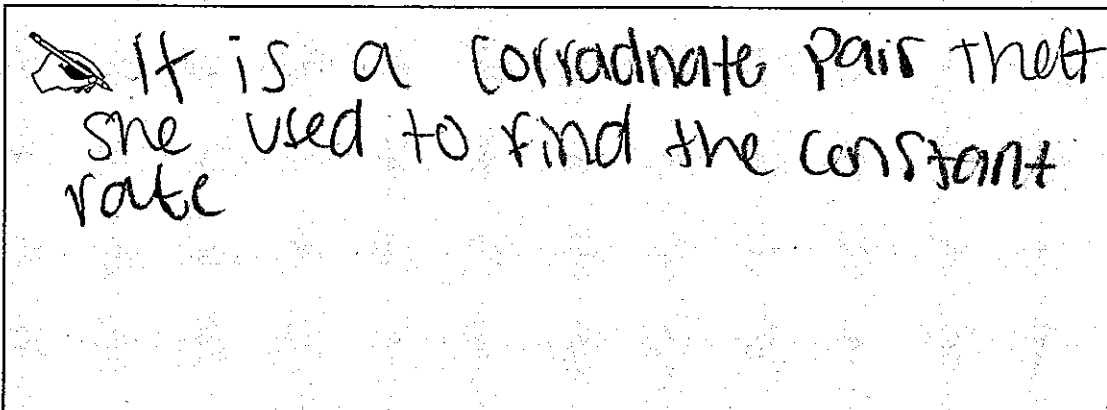 It is a corradnate pair that
she used to find the constant
rate